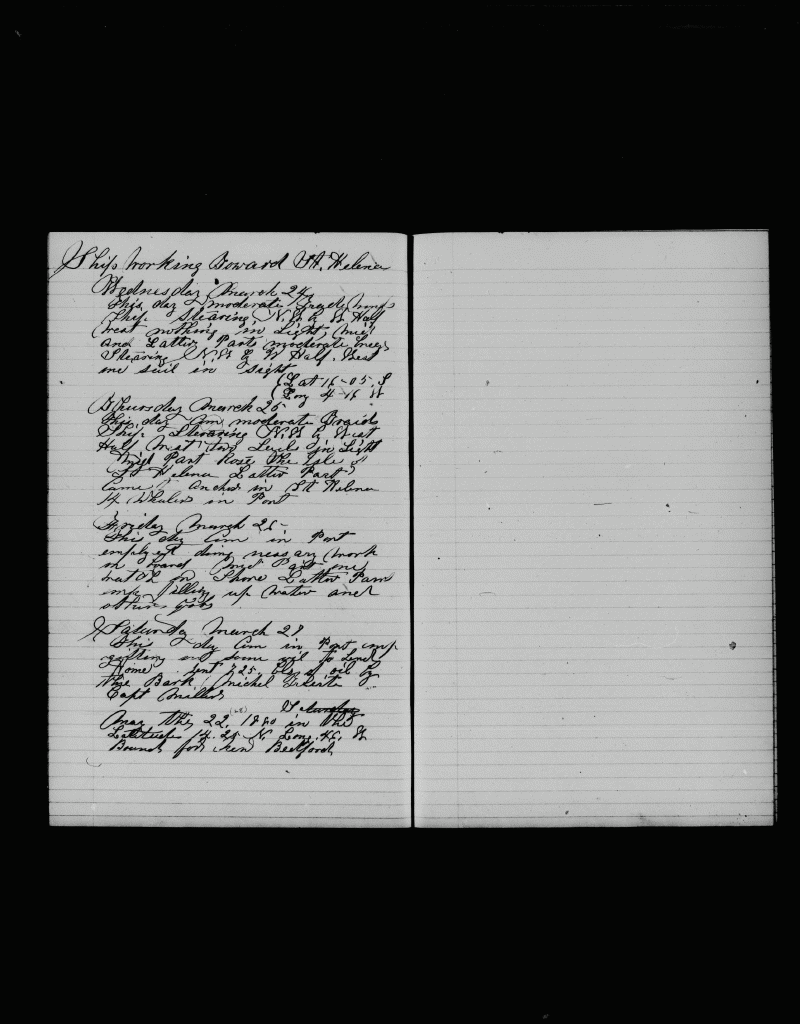 Ship Working Toward St. Helena
Wednesday March 24
This day moderate
Ship Stearing N.W. by W Half
West nothing in Sight, mid
and Latter Parts moderate
Stearing N.W by W Half West
one sail in Sight
(Lat 16-05. S
(Long 4-16 W
Thursday March 25
This day Com moderate
Ship Stearing N.W by West
Half West two Sails in Sight
Mid Part Rose the Isle of
St Helena Latter Part
Came to Anchor in St Helena
14 Whalers in Port
Friday March 26-
This day Com in Port
employed doing work
on board Mid Part one
watch on Shore Latter Part
emp filling up water and
other jobs
Saturday March 27
This day Com in Port emp
getting out some oil to Send
Home sent 225 bls of oil by
the Bark
Capt Miller
May the 22, 1880 in the
Latitude 14.25 N. Long. 46. W
Bound for New Bedford